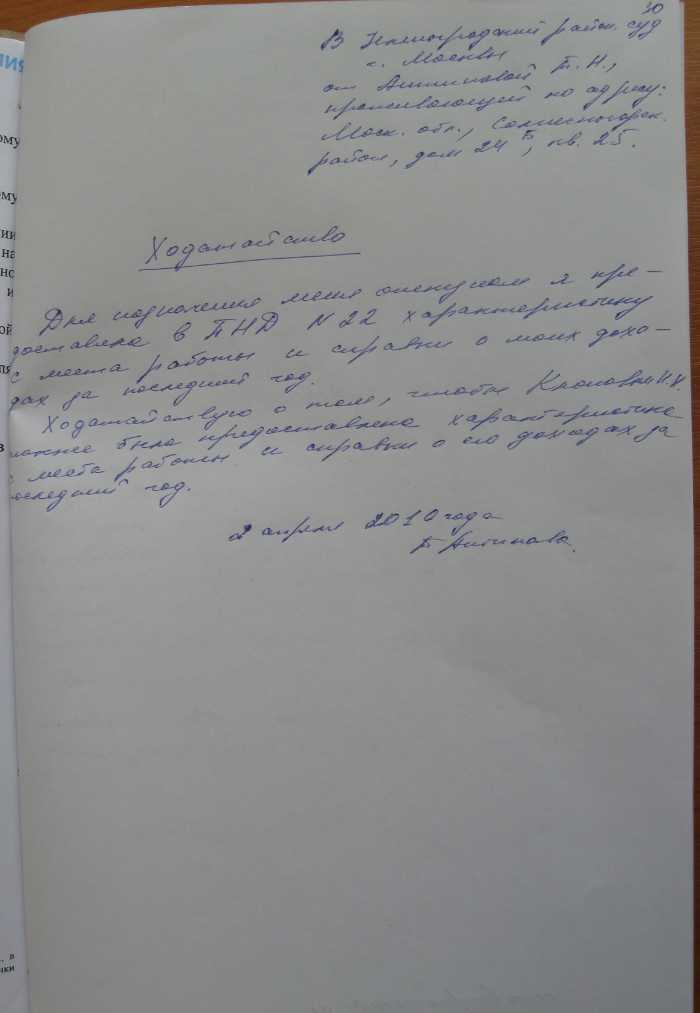 30
В Зеленоградский район. суд
г. Москвы
от Антиповой Т.Н.,
проживающей по адресу:
Моск. обл., Солнечногорск.
район, дом 24Б, кв. 25.
Ходатайство
Для назначения меня опекуном я пре-
доставляла в ПНД N 22 характеристику
с места работы и справки о моих дохо-
дах за последний год.
Ходатайствую о том, чтобы
также была предоставлена характеристика
с места работы и справки о его доходах за
последний год.
2 апреля 2010 года
Т Антипова
ому
ему
нии
на
но
и
ой
ля
в